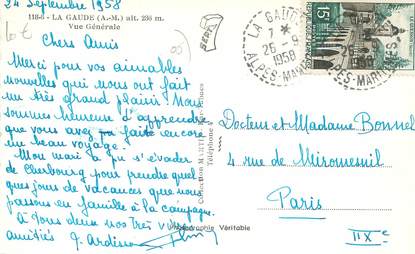 24 septembre 1958
118-6 - LA GAUDE (A.-M.) alt. 236 m.
Vue Générale
Chers Amis
Merci pour vos aimables
nouvelles qui nous ont fait
un très grand plaisir. Nous
sommes heureux d'apprendre
que vous avez pu faire encore
un beau voyage.
Mon mari a pu s'évader
de Cherbourg pour prendre quel
ques jours de vacances que nous
passons en famille à la campagne.
A tous deux nos très vives
amitiés
Photographie Véritable
Collection MARTIN
Téléphone
LA GAUDE
7 *
26 - 9
1958
ALPES-MARITIMES
15F
Docteur et Madame Bonnel
4 rue de Miromesnil
Paris